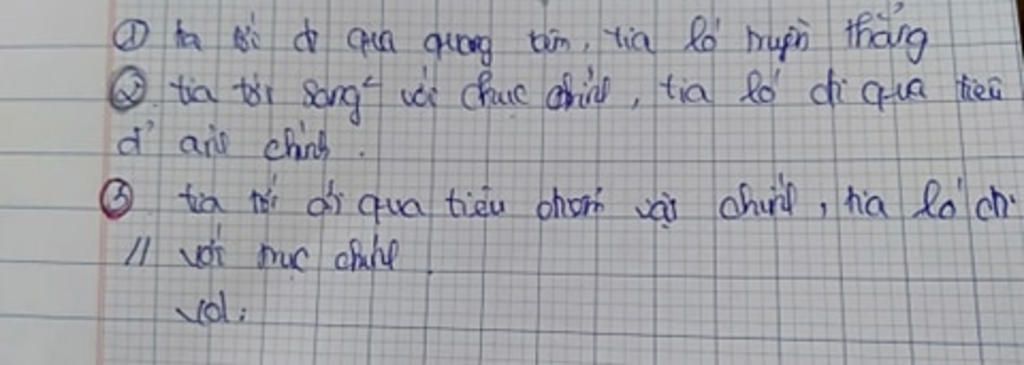 ① tia tới đi qua quang tâm, tia ló truyền thẳng
② tia tới song² với chục chính, tia ló đi qua tiêu
ảnh chính.
③ tia tới đi qua tiêu chính, tia ló đi
// với trục chính
vd: